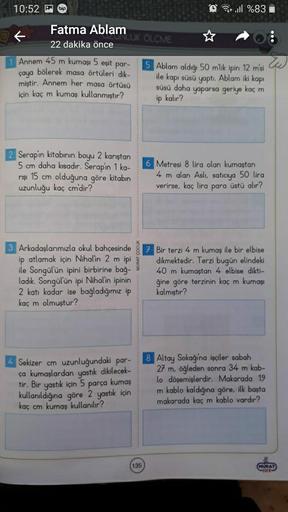 10:52
%83
Fatma Ablam
22 dakika önce
ÖLÇME
1 Annem 45 m kumaşı 5 eşit par-
çaya bölerek masa örtüleri dik-
miştir. Annem her masa örtüsü
için kaç m kumaş kullanmıştır?
2 Serap'ın kitabının boyu 2 karıştan
5 cm daha kısadır. Serap'ın 1 ka-
rışı 15 cm olduğuna göre kitabın
uzunluğu kaç cm'dir?
3 Arkadaşlarımızla okul bahçesinde
ip atlamak için Nihal'in 2 m ipi
ile Songül'ün ipini birbirine bağ-
ladık. Songül'ün ipi Nihal'in ipinin
2 katı kadar ise bağladığımız ip
kaç m olmuştur?
4 Sekizer cm uzunluğundaki par-
ça kumaşlardan yastık dikilecek-
tir. Bir yastık için 5 parça kumaş
kullanıldığına göre 2 yastık için
kaç cm kumaş kullanılır?
MURAT ÇOCUK
5 Ablam aldığı 50 m'lik ipin 12 m'si
ile kapı süsü yaptı. Ablam iki kapı
süsü daha yaparsa geriye kaç m
ip kalır?
6 Metresi 8 lira olan kumaştan
4 m alan Aslı, satıcıya 50 lira
verirse, kaç lira para üstü alır?
7 Bir terzi 4 m kumaş ile bir elbise
dikmektedir. Terzi bugün elindeki
40 m kumaştan 4 elbise dikti-
ğine göre terzinin kaç m kumaşı
kalmıştır?
8 Altay Sokağı'na işçiler sabah
27 m, öğleden sonra 34 m kab-
lo döşemişlerdir. Makarada 19
m kablo kaldığına göre, ilk başta
makarada kaç m kablo vardır?
135
MURAT